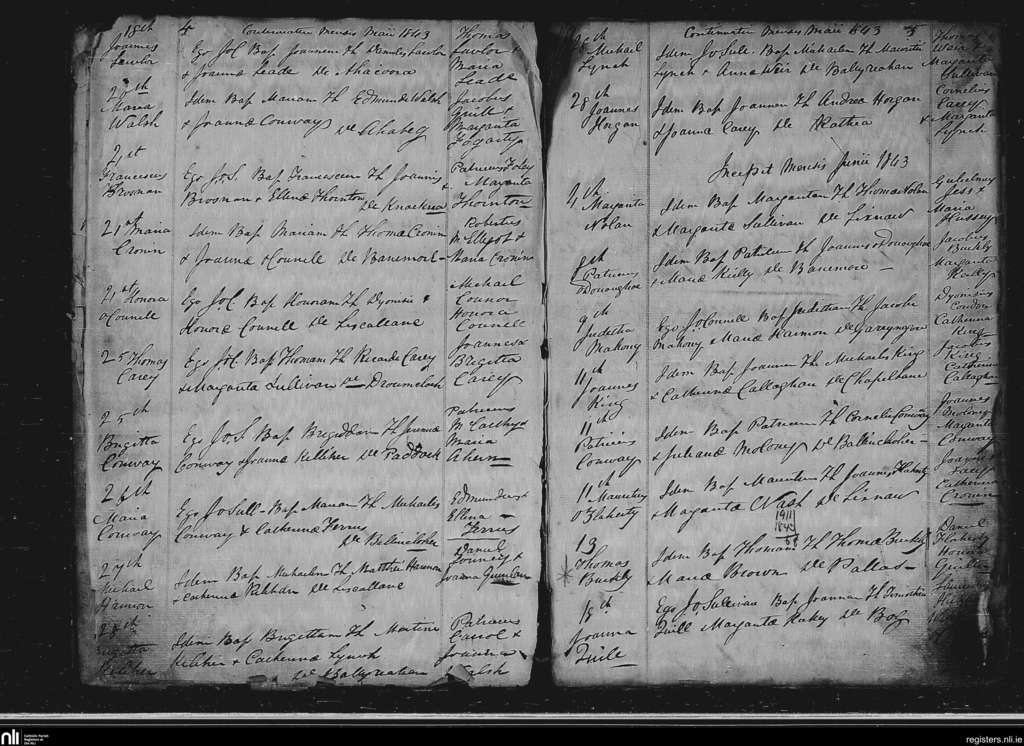 18th 4 Continuatur Mensis Maii 1843
Joannes Lawlor
Ego JoC Bap Joannem Th Lawlor
& Joanna Leade de
Thomas Lawlor &
Maria Leade
Maria Walsh
Idem Bap Mariam Th Edmundi Walsh
& Joanna Conway de Ahabeg
Jacobus Quill &
Margarita Fogarty
21st
Franciscus Brosnan
Ego JoS Bap Franciscum Th Joannis
Brosnan & Ellena Thornton
de
Patricius Foley
Margarita Thornton
21st Maria
Crown
Idem Bap Mariam Th Thoma Cronin
& Joanna Connell de Banemore
Robertus
McElligot &
Maria Cronin
21st Honora
Connell
Ego JoC Bap Honoram Th Dyonisii &
Honora Connell de Liscullane
Michael
Connor
Honora
Connell
25 Thomas
Carey
Ego JoC Bap Thomam Th Ricardi Carey
& Margarita Sullivan de
Joannes &
Brigetta
Carey
25th
Brigitta
Conway
Ego JoS Bap Th
Conway & Joanna Kelliher de Paddock
Patricius
McCarthy &
Maria
Ahern
26th
Maria
Conway
Ego JoSull Bap Mariam Th Michaelis
Conway & Catherina Ferris
de
Edmundus &
Ellena
Ferris
27th
Michael
Hannon
Idem Bap Michaelem Th Matthei Hannon
& Catherina de Liscullane
Daniel
Joanna Quinlan
28th
Brigitta
Kelliher
Idem Bap Brigettam Th Martini
Keliher & Catherina Lynch
de Ballyreahan
Patricius
Carrol &
Joanna
Walsh
Continuatur Mensis Maii 1843 5
Michael
Lynch
Idem JoSull Bap Michaelem Th Mauritii
Lynch & Anna Weir de Ballyreahan
Thomas
Weir &
Margarita
Sullivan
28th
Joannes
Horgan
Idem Bap Joannem Th Andrea Horgan
& Joanna Carey de Rathea
Cornelius
Carey
& Margarita
Lynch
Incipit Mensis Junii 1843
4th
Margarita
Nolan
Idem Bap Margaritam Th Thoma Nolan
& Margarita Sullivan de Lisnaw
Gulielmus
&
Maria
Hussey
8th
Patricius
ODonoughoe
Idem Bap Patricium Th Joannis ODonoughoe
& Maria Kielly de Banemore
Jacobus
Buckly
Margarita
Kielly
9th
Juditha
Mahony
Ego JoConnell Bap Juditham Th Jacobi
Mahony & Maria Hannon de
Dyonisius
Condon
Catherina
King
11th
Joannes
King
Idem Bap Joannem Th Michaelis King
& Catherina Callaghan de Chapeltown
Jacobus
King
Catherina
Callaghan
11th
Patricius
Conway
Idem Bap Patricium Th Cornelii Conway
& Juliana Moloney de Ballincloher
Joannes
Moloney
Margarita
Conway
11th
Mauritius
OFlaherty
Idem Bap Mauritium Th Joannis Flaherty
& Margarita Nash de Lisnaw
Catherina
Crown
1911
1843
68
13
Thomas
Buckly
Idem Bap Thomam Th Thoma Buckly
& Maria Brown de Pallas
Daniel
Flaherty
Honora
Quillan
18th
Joanna
Quill
Ego JoSullivan Bap Joannam Th Timothei
Quill Margarita de Bog
nli Catholic Parish
Registers at
the NLI
registers.nli.ie